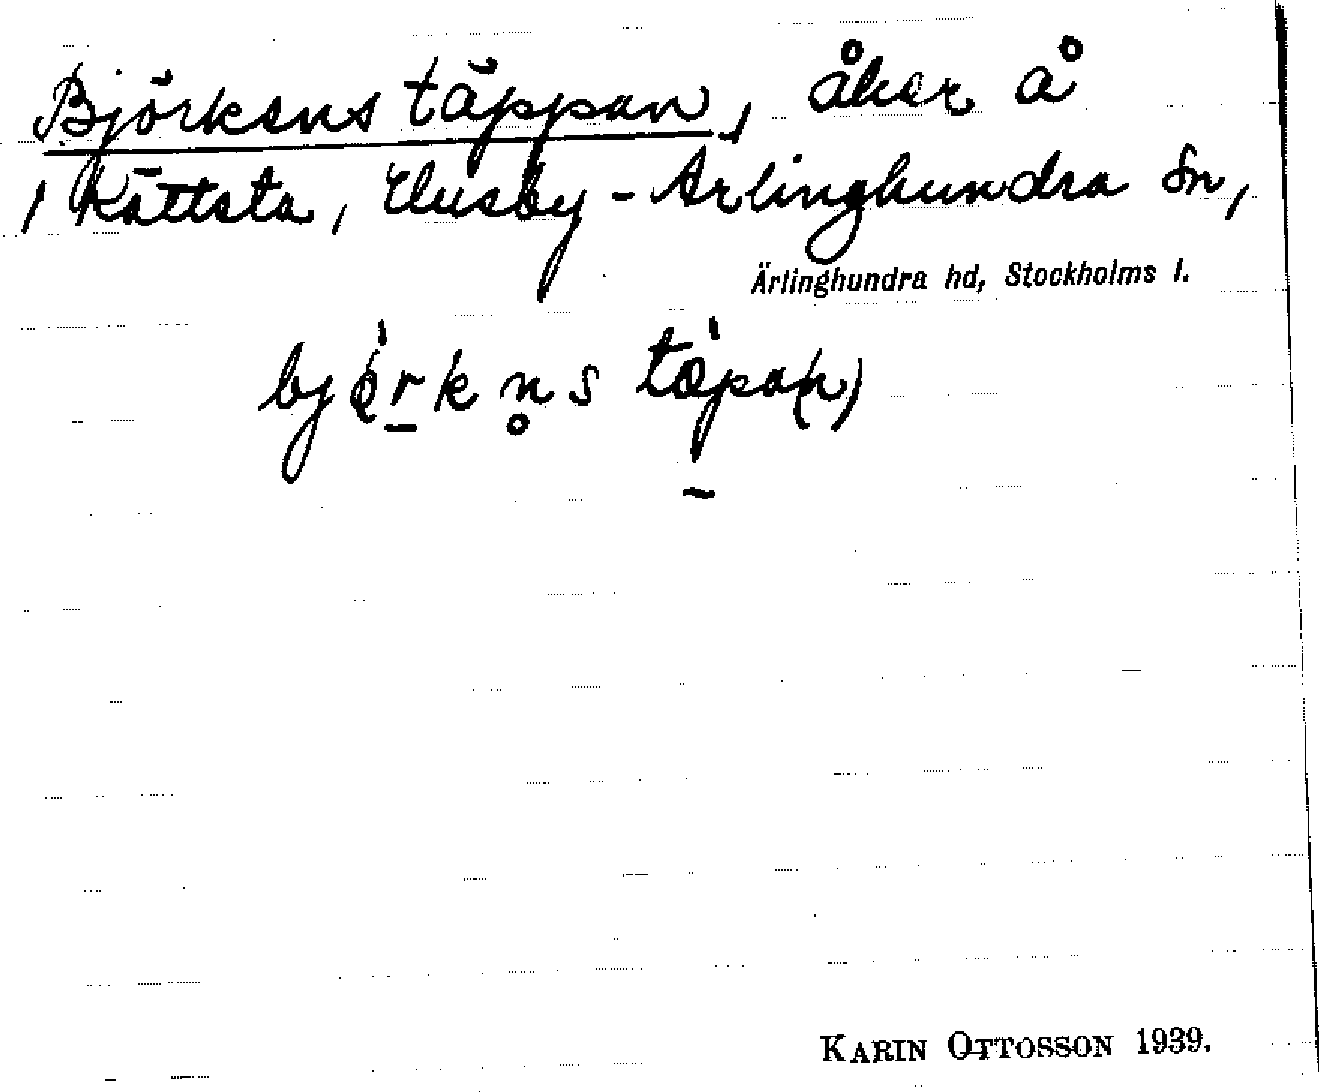 Björkens täppan, åker å
/ Kättsta, Husby-Ärlinghundra sn,
Ärlinghundra hd, Stockholms l.
björkn̥s täpa(n)
KARIN OTTOSSON 1939.